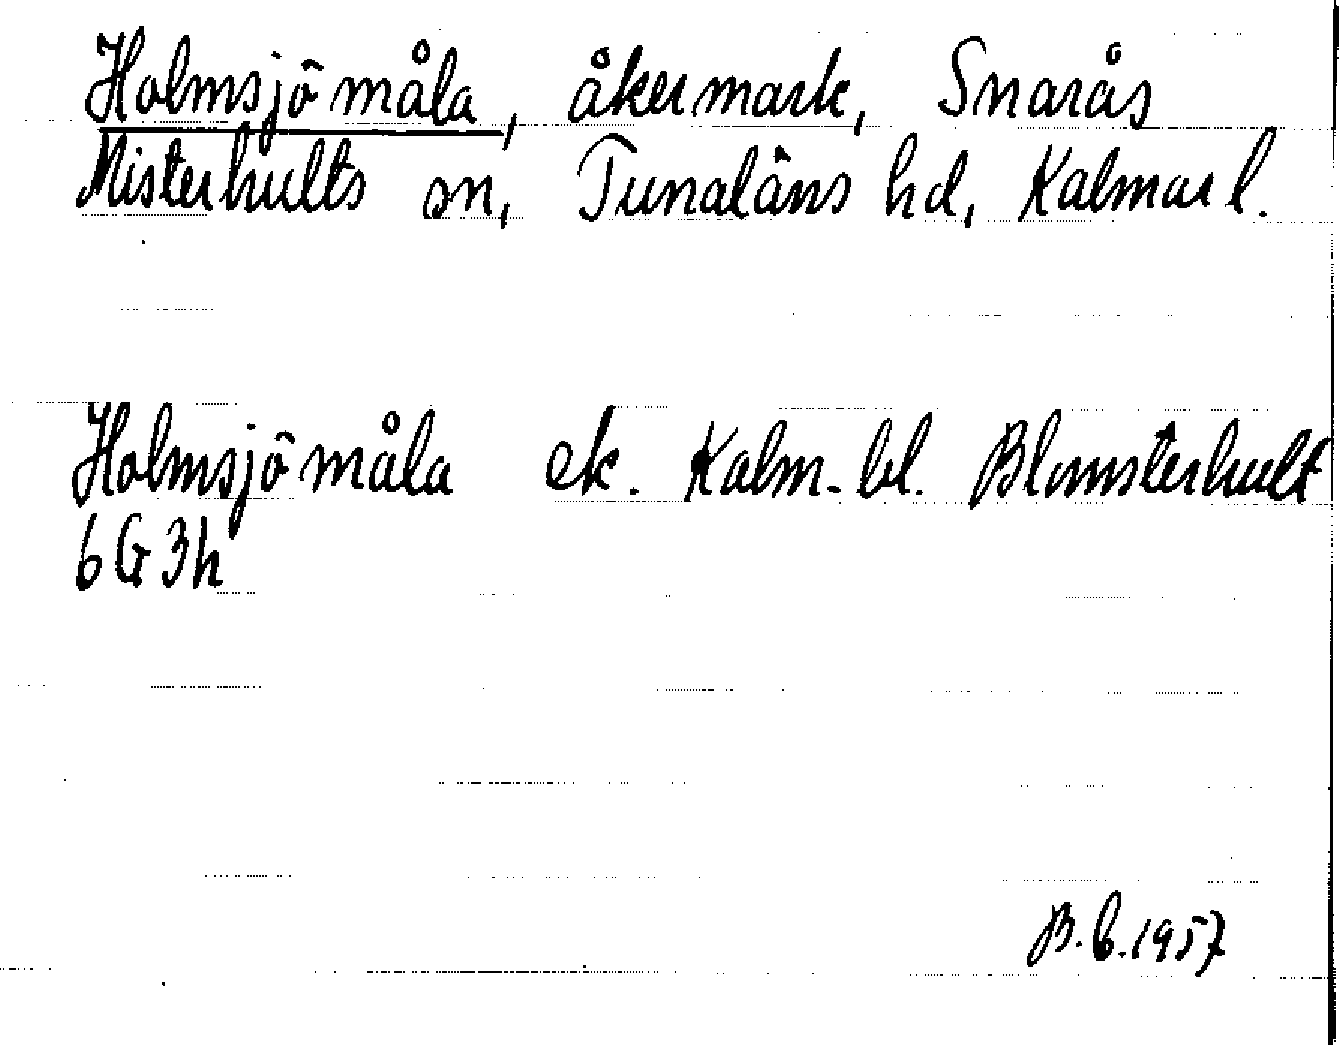 Holmsjömåla, åkermark, Snarås
Misterhults sn, Tunaläns hd, Kalmar l.
Holmsjömåla ek. Kalm-bl. Blomsterhult
6G3h
B.b.1957